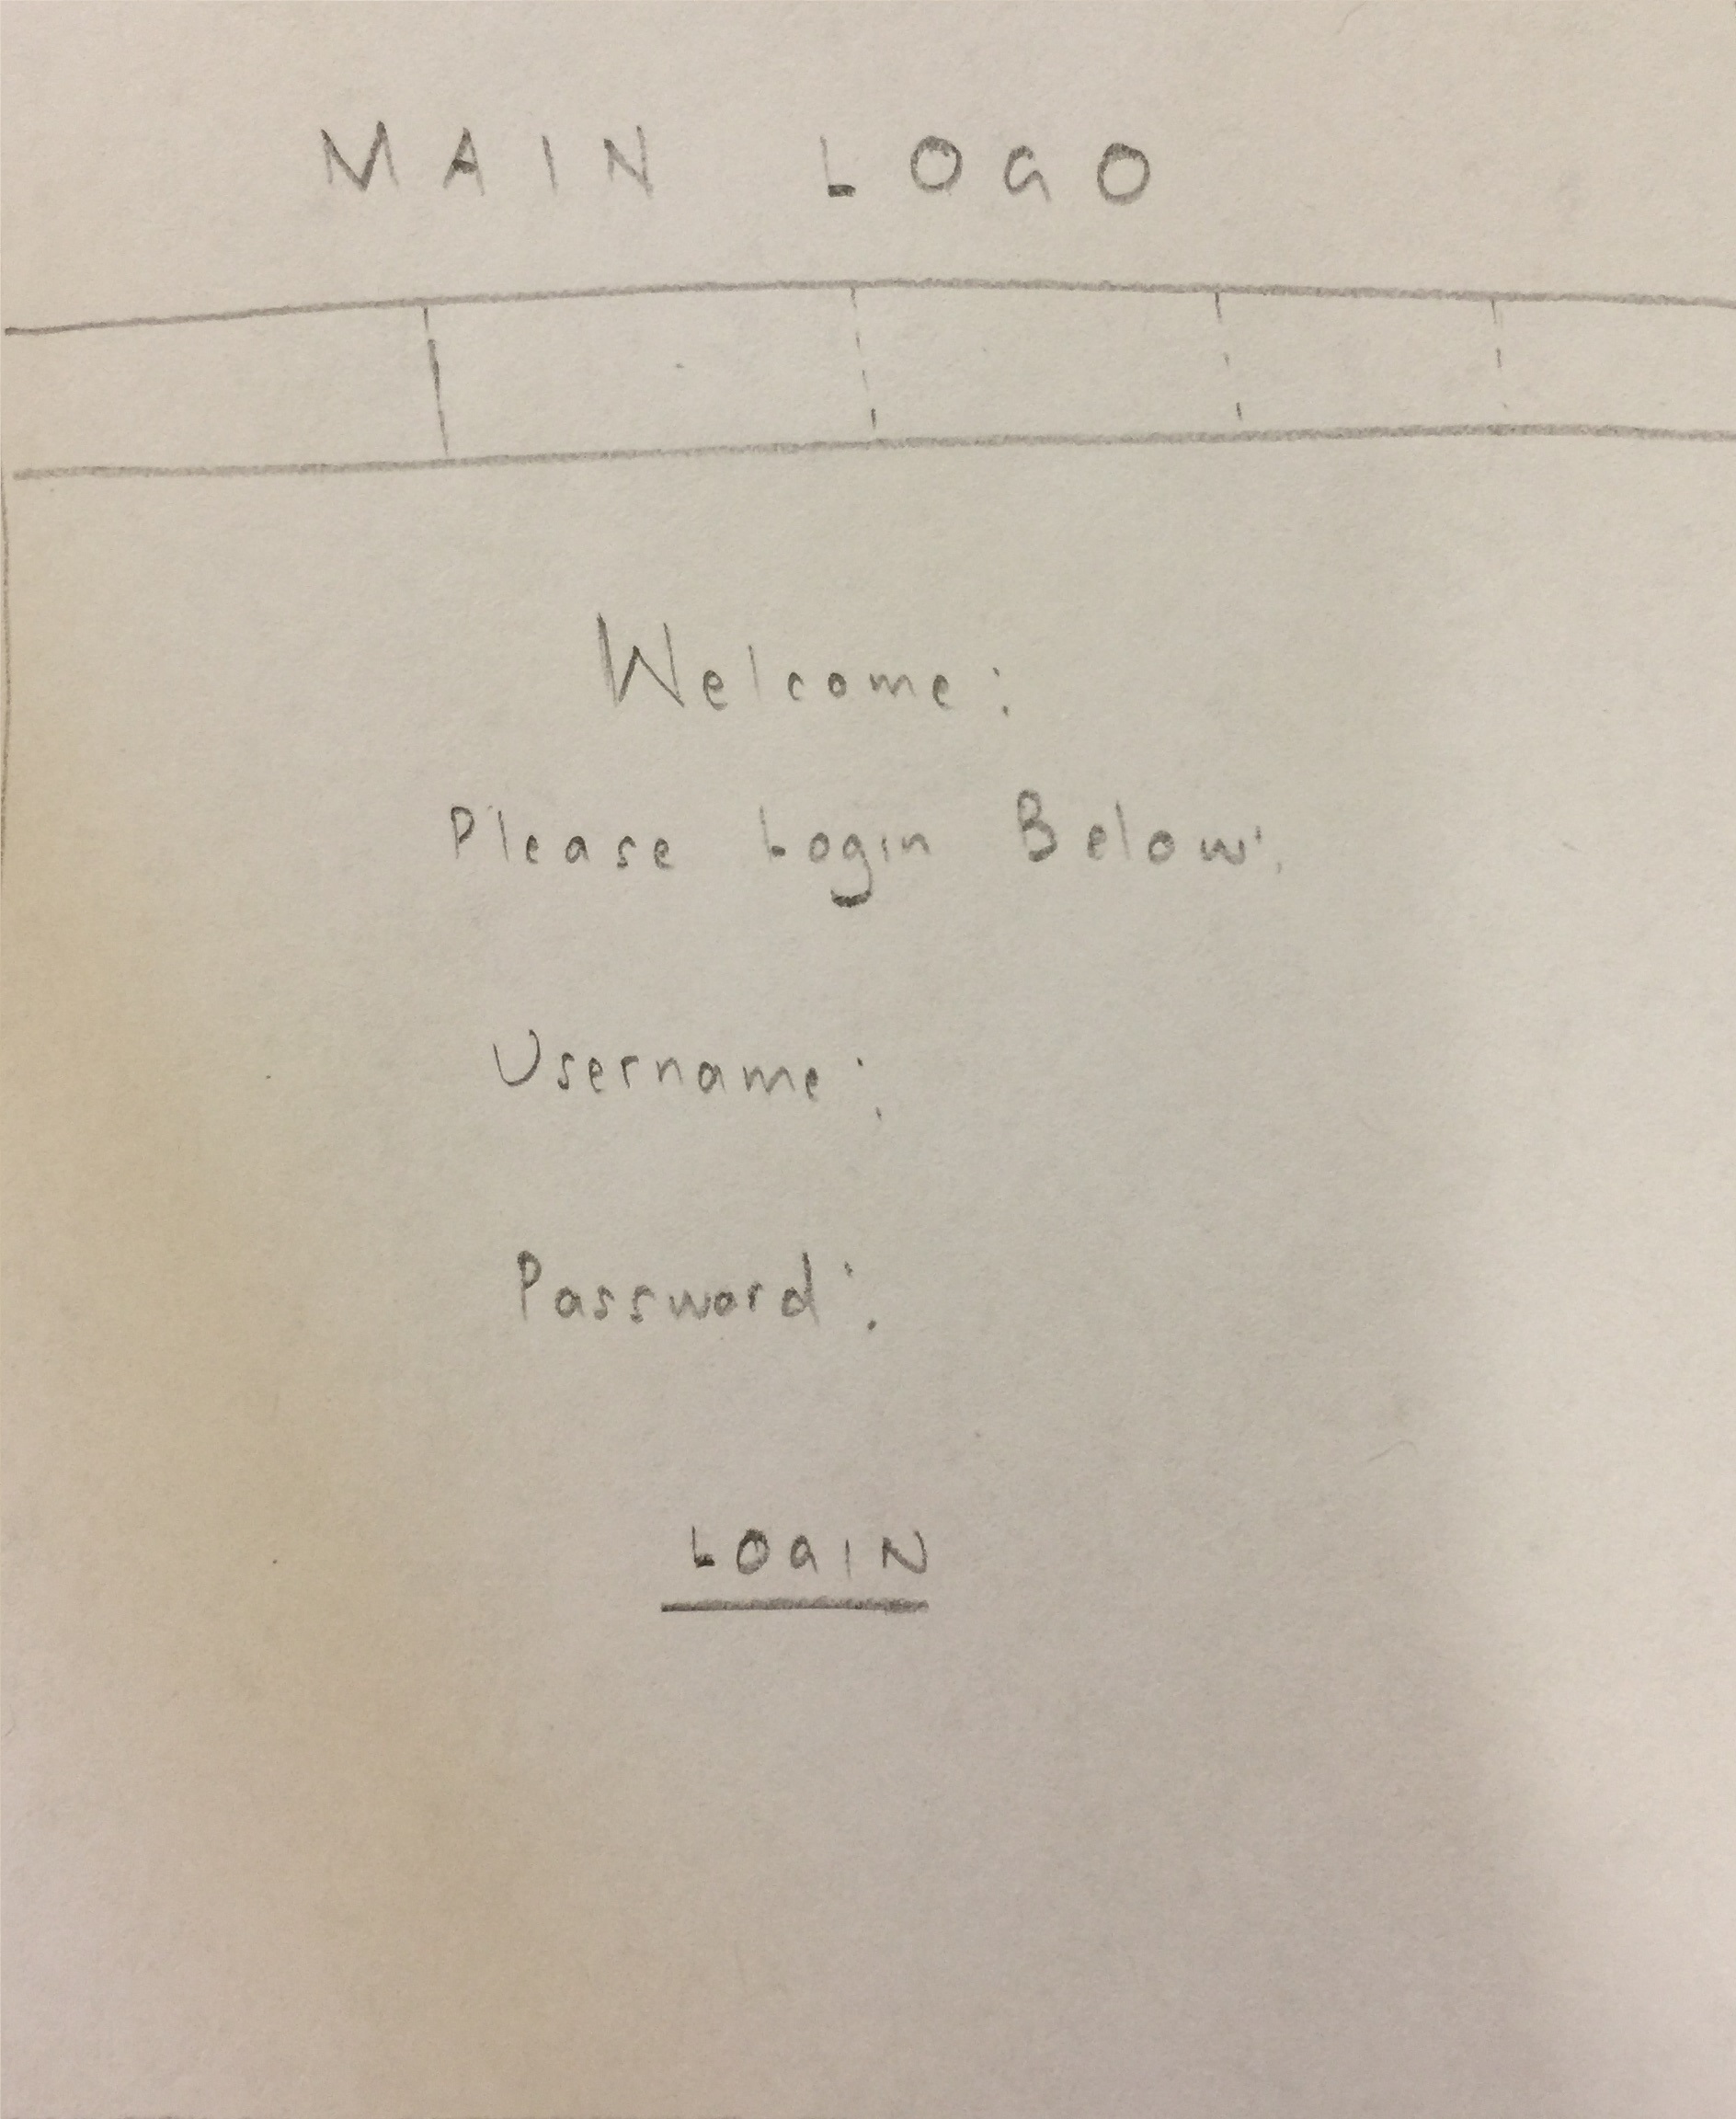 MAIN LOGO
Welcome:
Please Login Below:
Username:
Password:
LOGIN